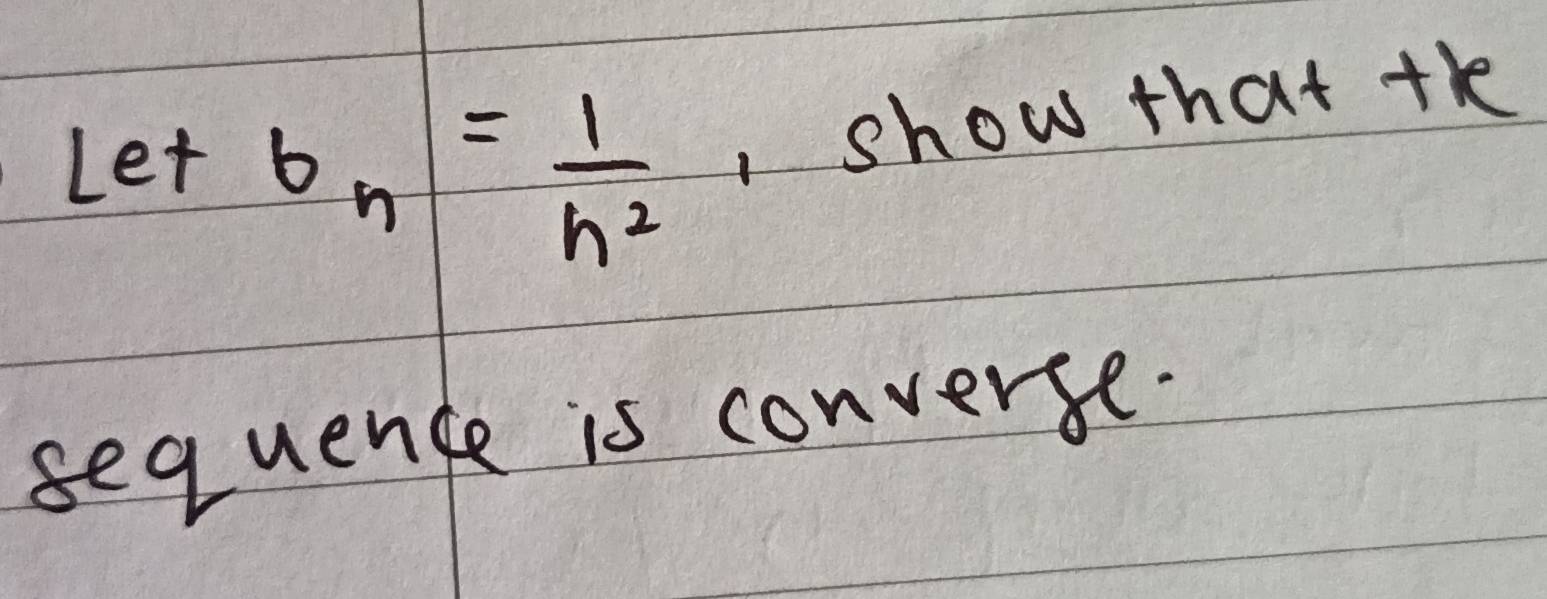 Let bₙ = 1/n², show that the
sequence is converge.